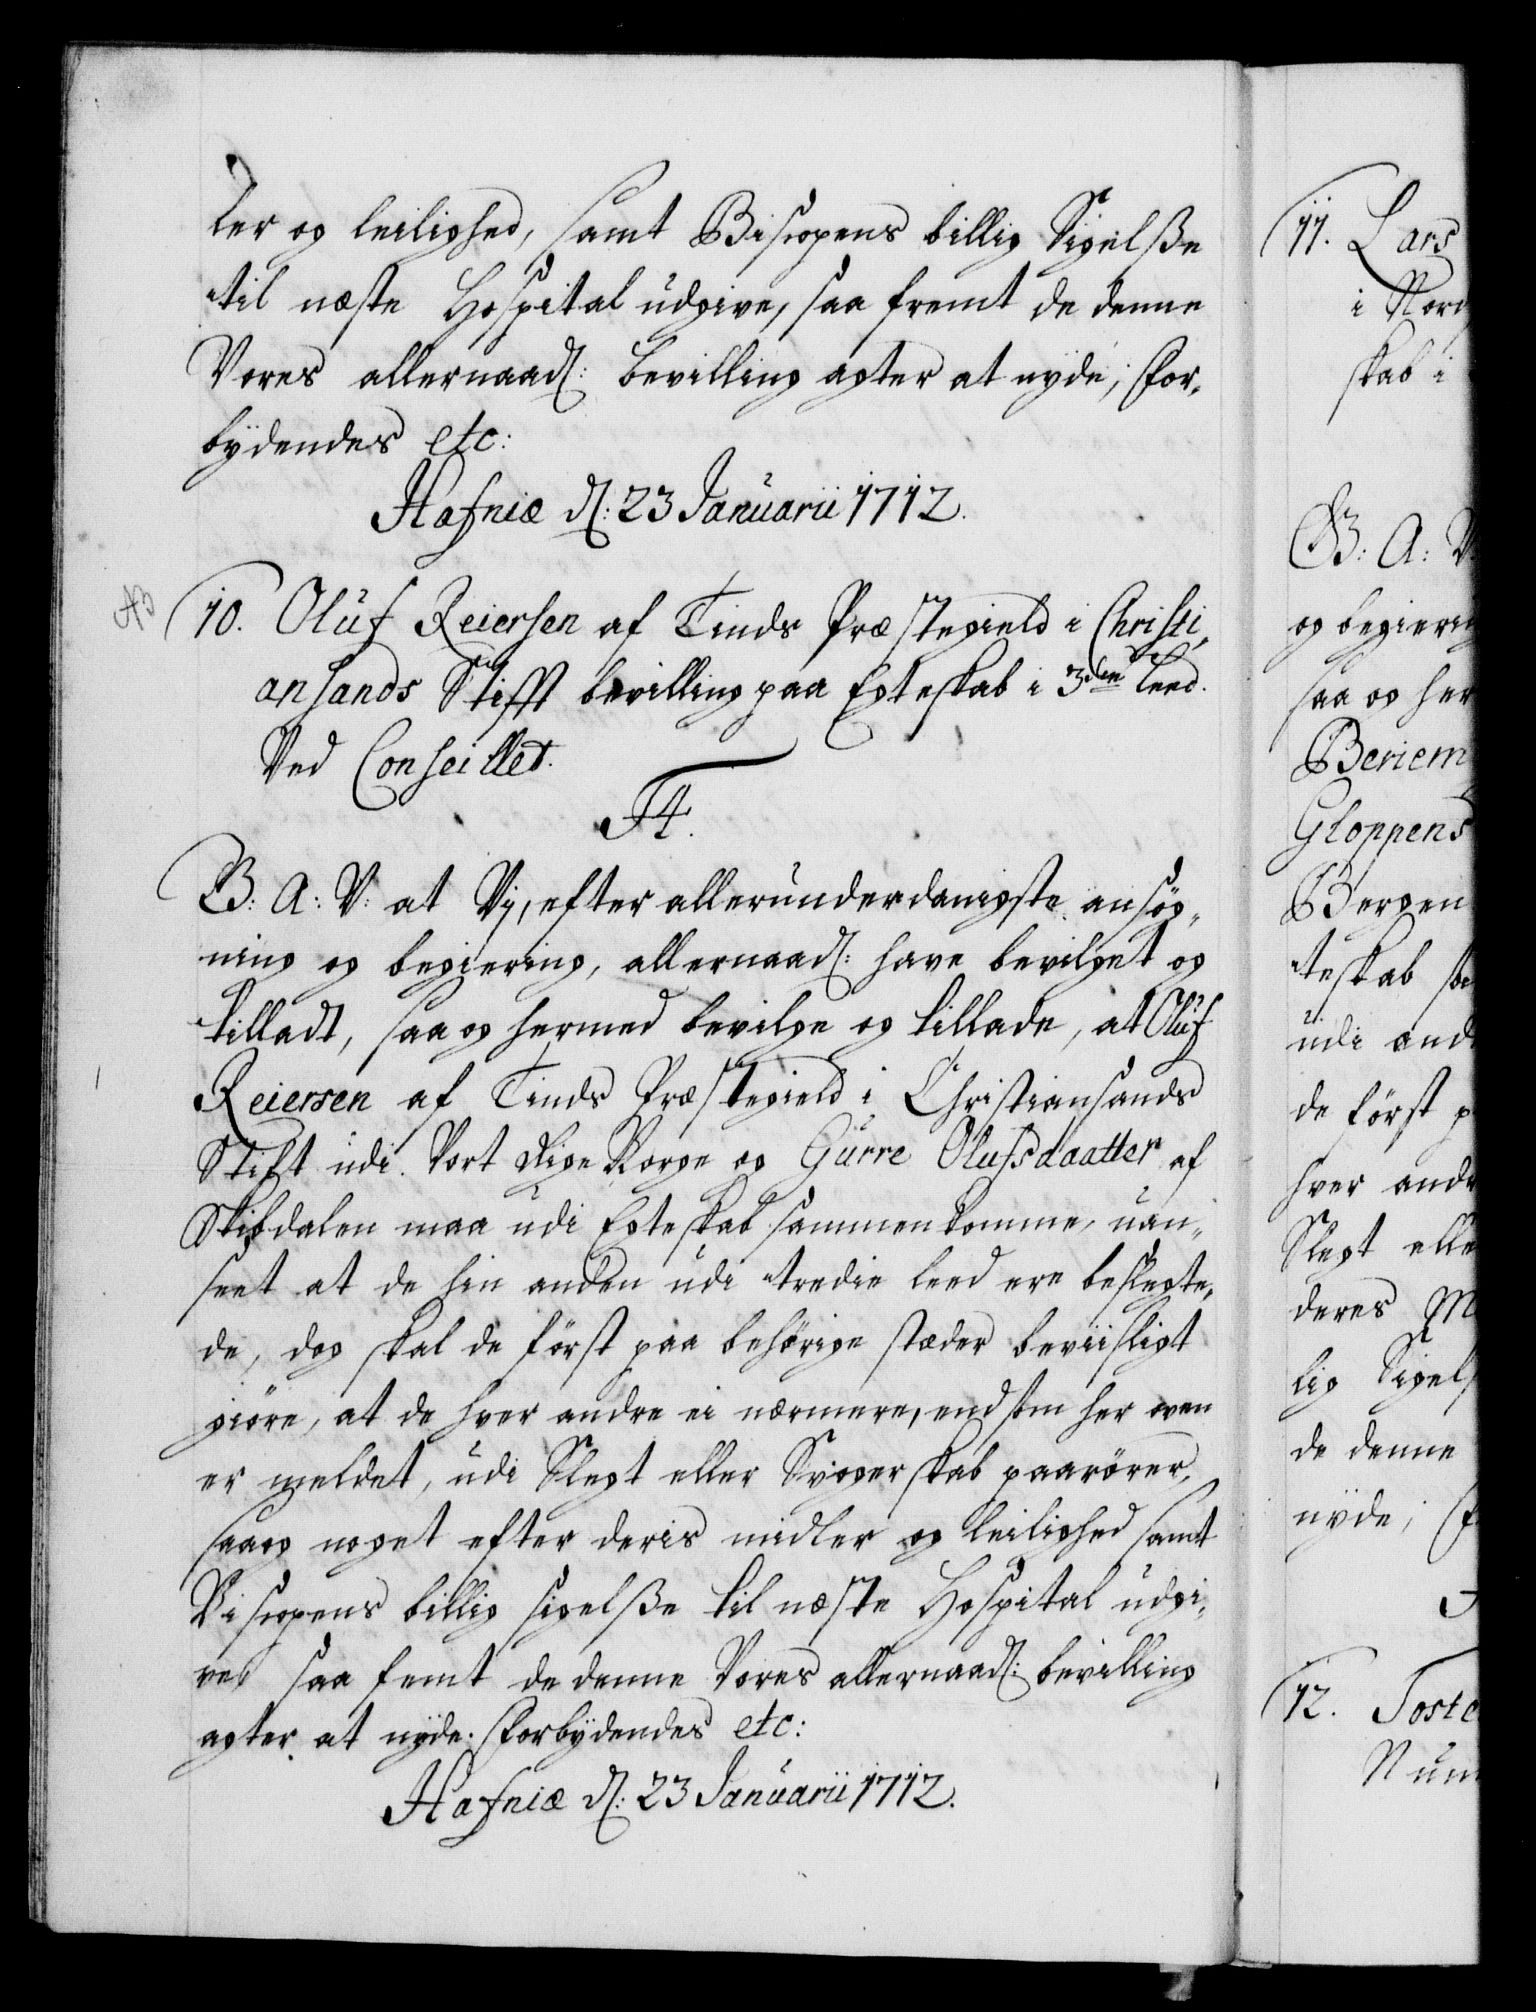 ler og leilighed, samt Biscopens billig Sigelsße
til næste Hospital udgive, saa fremt de denne
Vores allernaad: bevilling agter at nyde; For-
bydendes etc:
Hafniæ d: 23 Januarii 1712.
10. Oluf Reiersen af Tinds Præstegield i Christi-
ansands Stifft bevilling paa Egteskab i 3den leed.
Ved Conseillet.
F4.
B: A: V: at Vj, efter allerunderdanigste ansøg-
ning og begiering, allernaad: have bevilget og
tilladt, saa og hermed bevilge og tillade, at Oluf
Reiersen af Tinds Præstegield i Christiansands
Stift udi Vort Rige Norge og Gurre Olufsdaatter af
Skibdalen maa udi Egteskab sammenkomme, uan-
seet at de hin anden udi tredie leed ere beslegte-
de, dog skal de först paa behörige stæder beviisligt
giöre, at de hver andre ei nærmere, end som her oven
er meldet, udi Slegt eller Svogerskab paarörer,
saa og noget efter deris midler og leilighed samt
Biscopens billig sigelsße til næste Hospital udgi-
ve, saa femt de denne Vores allernaad: bevilling
agter at nyde. Forbydendes etc:
Hafniæ d: 23 Januarii 1712.
11. Lars
i Norg
skab i
B: A: V
og begierin
saa og her
Beriem
Gloppens
Bergen
teskab
udi and
de först p
hver andr
Slegt elle
deres M
lig Sigels
de denne
nyde; F
12. Toste
Num